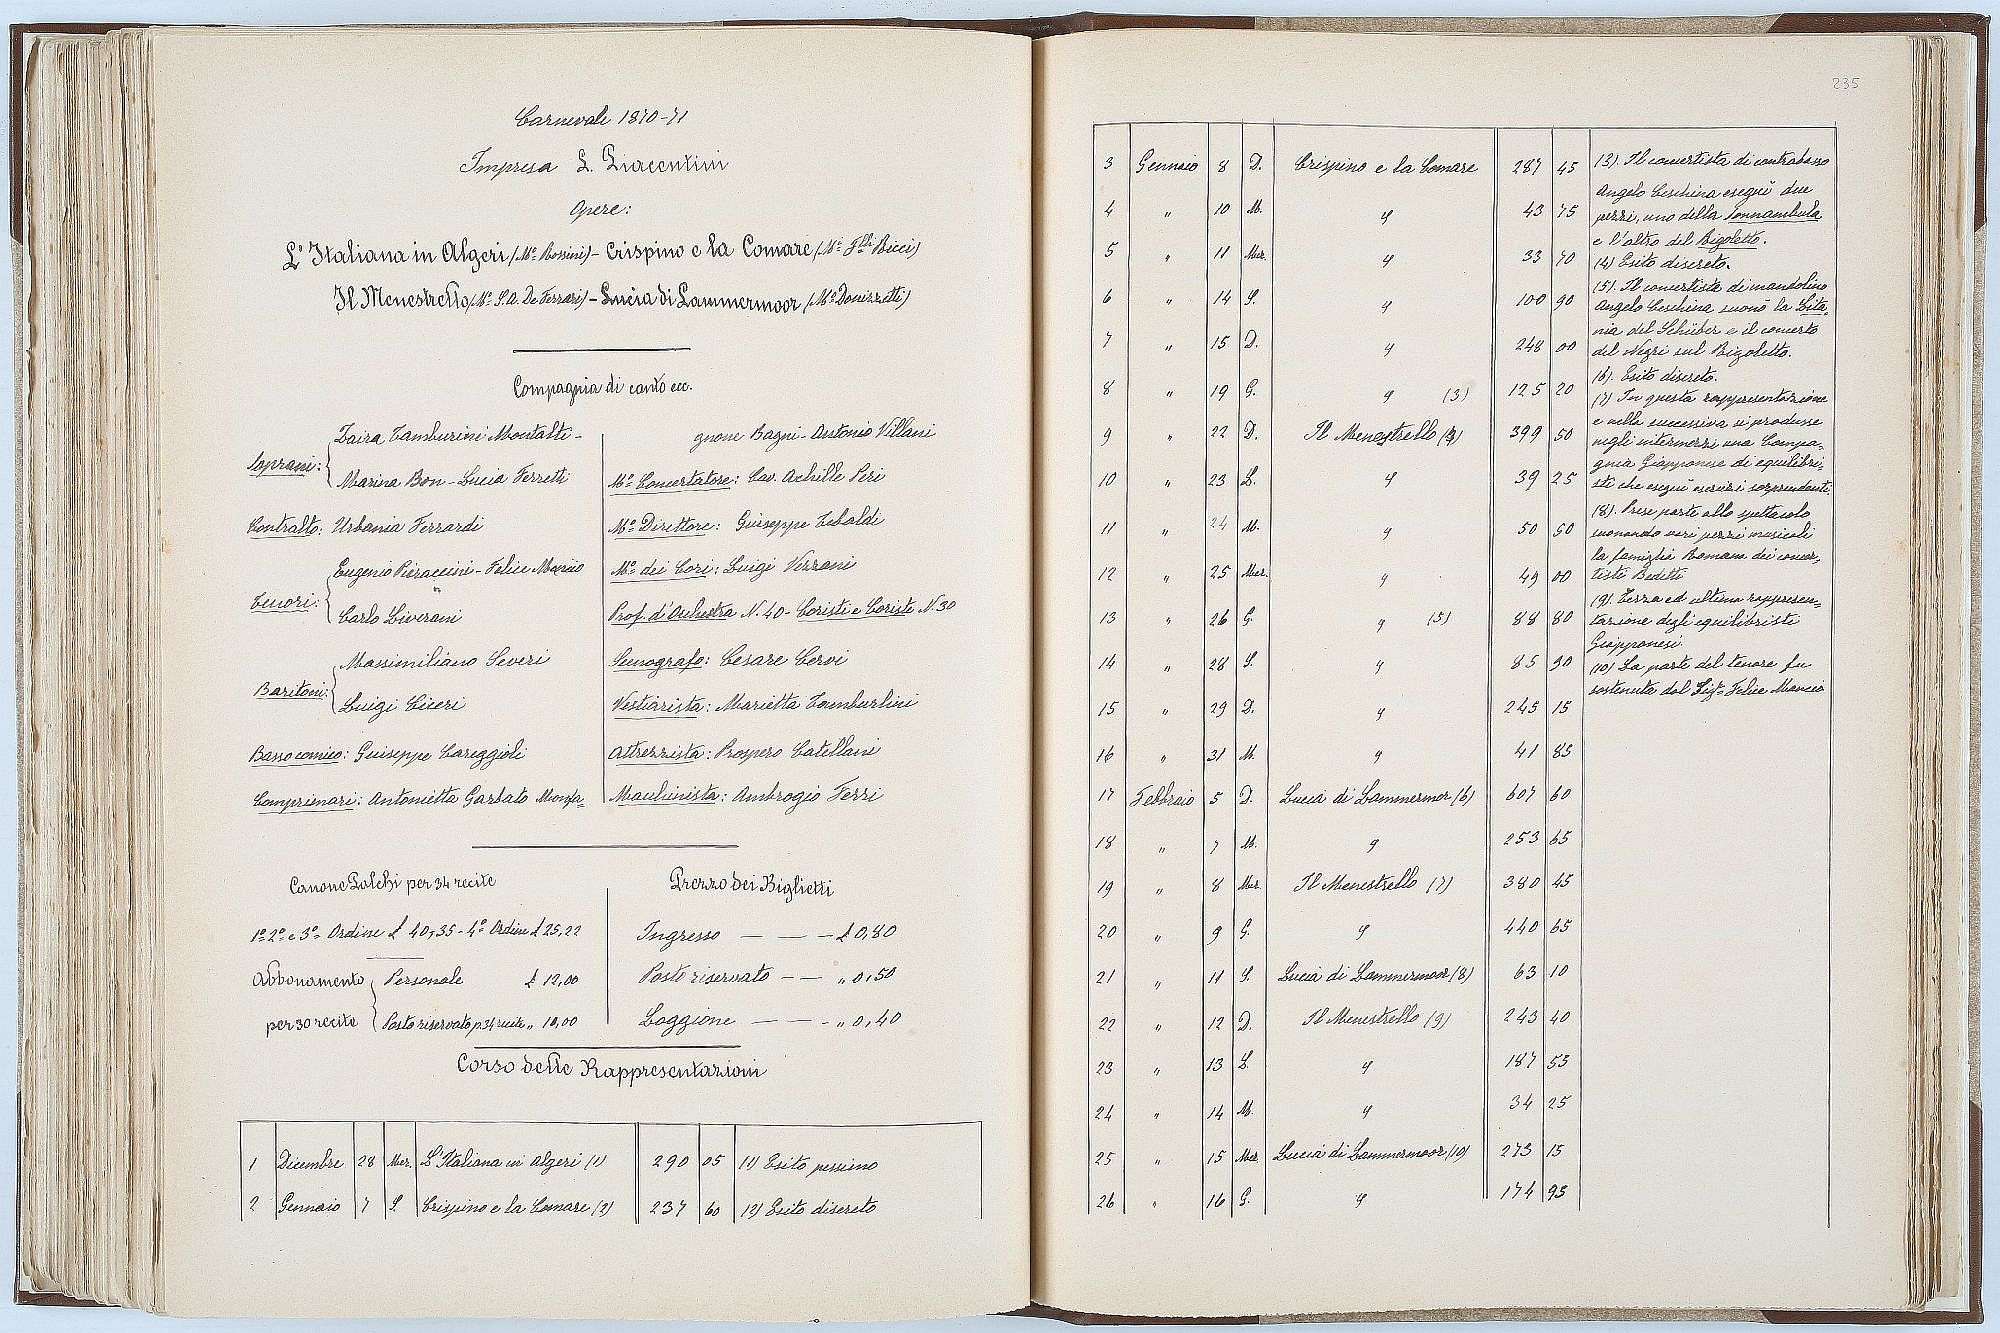 Carnevale 1870-71
Impresa L. Piacentini
Opere:
L'Italiana in Algeri (Mo. Rossini) - Crispino e la Comare (Mi. F.lli Ricci)
Il Menestrello (Mo. S.A. De Ferrari) - Lucia di Lammermoor (Mo. Donizzetti)
Compagnia di canto ecc.
Soprani: Zaira Tamburini Montalti -
Marina Bon - Lucia Ferretti
Contralto: Urbania Ferrardi
Tenori: Eugenio Pieraccini - Felice Mancio
Carlo Liverani
Baritoni: Massimiliano Severi
Luigi Ciceri
Basso comico: Guiseppe Careggioli
Comprimari: Antonietta Garbato Monfa-
gnone Bagni - Antonio Villani
Mo. Concertatore: Cav. Achille Peri
Mo. Direttore: Guiseppe Tebaldi
Mo. dei Cori: Luigi Verzani
Prof. d'Orchestra N. 40 - Coristi e Coriste N. 30
Scenografo: Cesare Cervi
Vestiarista: Marietta Tamburlini
Attrezzista: Prospero Catellani
Machinista: Ambrogio Ferri
Canone Palchi per 34 recite
1o. 2o. e 3o. Ordine £ 40,35 - 4o. Ordine £ 25,22
Abbonamento per 30 recite
Personale £ 12,00
Posto riservato p. 34 recite " 10,00
Prezzo dei Biglietti
Ingresso — — — £ 0,80
Posto riservato — — " 0,50
Loggione — — - " 0,40
Corso delle Rappresentazioni
1 Dicembre 28 Mer. L'Italiana in Algeri (1) 290 05 (1) Esito pessimo
2 Gennaio 7 S. Crispino e la Comare (2) 237 60 (2) Esito discreto
235
3 Gennaio 8 D. Crispino e la Comare 287 45
4 " 10 M. " 43 75
5 " 11 Mer. " 33 70
6 " 14 S. " 100 90
7 " 15 D. " 248 00
8 " 19 G. " (3) 125 20
9 " 22 D. Il Menestrello (4) 399 50
10 " 23 L. " 39 25
11 " 24 M. " 50 50
12 " 25 Mer. " 49 00
13 " 26 G. " (5) 88 80
14 " 28 S. " 85 90
15 " 29 D. " 245 15
16 " 31 M. " 41 85
17 Febbraio 5 D. Lucia di Lammermor (6) 607 60
18 " 7 M. " 253 65
19 " 8 Mer. Il Menestrello (7) 380 45
20 " 9 G. " 440 65
21 " 11 S. Lucia di Lammermoor (8) 63 10
22 " 12 D. Il Menestrello (9) 243 40
23 " 13 L. " 187 53
24 " 14 M. " 34 25
25 " 15 Mer. Lucia di Lammermoor (10) 273 15
26 " 16 G. " 174 95
(3). Il concertista di contrabasso
Angelo Ceschina eseguì due
pezzi, uno della Sonnambula
e l'altro del Rigoletto.
(4) Esito discreto.
(5). Il concertista di mandolino
Angelo Ceschina suonò la Lita-
nia del Schüber e il concerto
del Negri sul Rigoletto.
(6). Esito discreto.
(7) In questa rappresentazione
e nella successiva si produsse
negli intermezzi una Compa-
gnia Giapponese di equilibri-
sti che eseguì esercizi sorprendenti.
(8). Prese parte allo spettacolo
suonando vari pezzi musicali
la famiglia Romana dei concer-
tisti Bedetti
(9). Terza ed ultima rappresen-
tazione degli equilibristi
Giapponesi.
(10) La parte del tenore fu
sostenuta dal Sigr. Felice Mancio